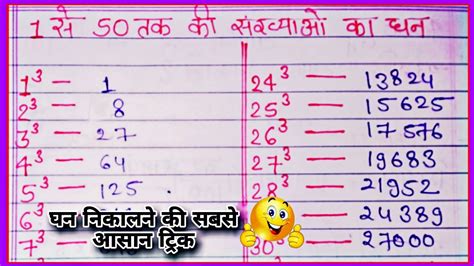 1 से 50 तक की संख्याओं का घन
1³ — 1
2³ — 8
3³ — 27
4³ — 64
5³ — 125
6³
7³
24³ — 13824
25³ — 15625
26³ — 17576
27³ — 19683
28³ — 21952
24389
30³ — 27000
घन निकालने की सबसे
आसान ट्रिक